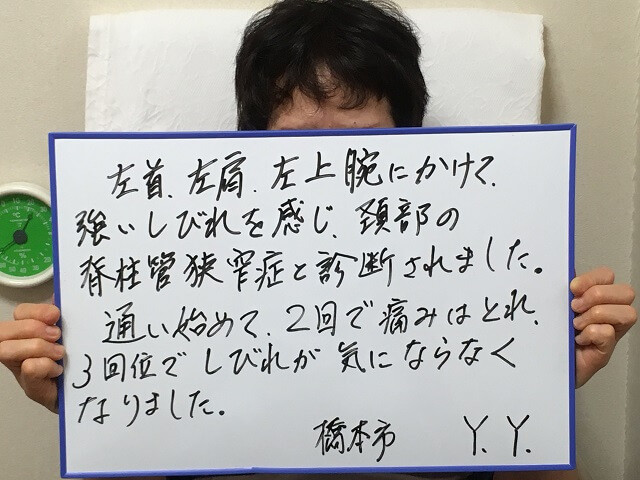 左首、左肩、左上腕にかけて、
強いしびれを感じ、頚部の
脊柱管狭窄症と診断されました。
通い始めて、2回で痛みはとれ、
3回位でしびれが気にならなく
なりました。
橋本市 Y.Y.